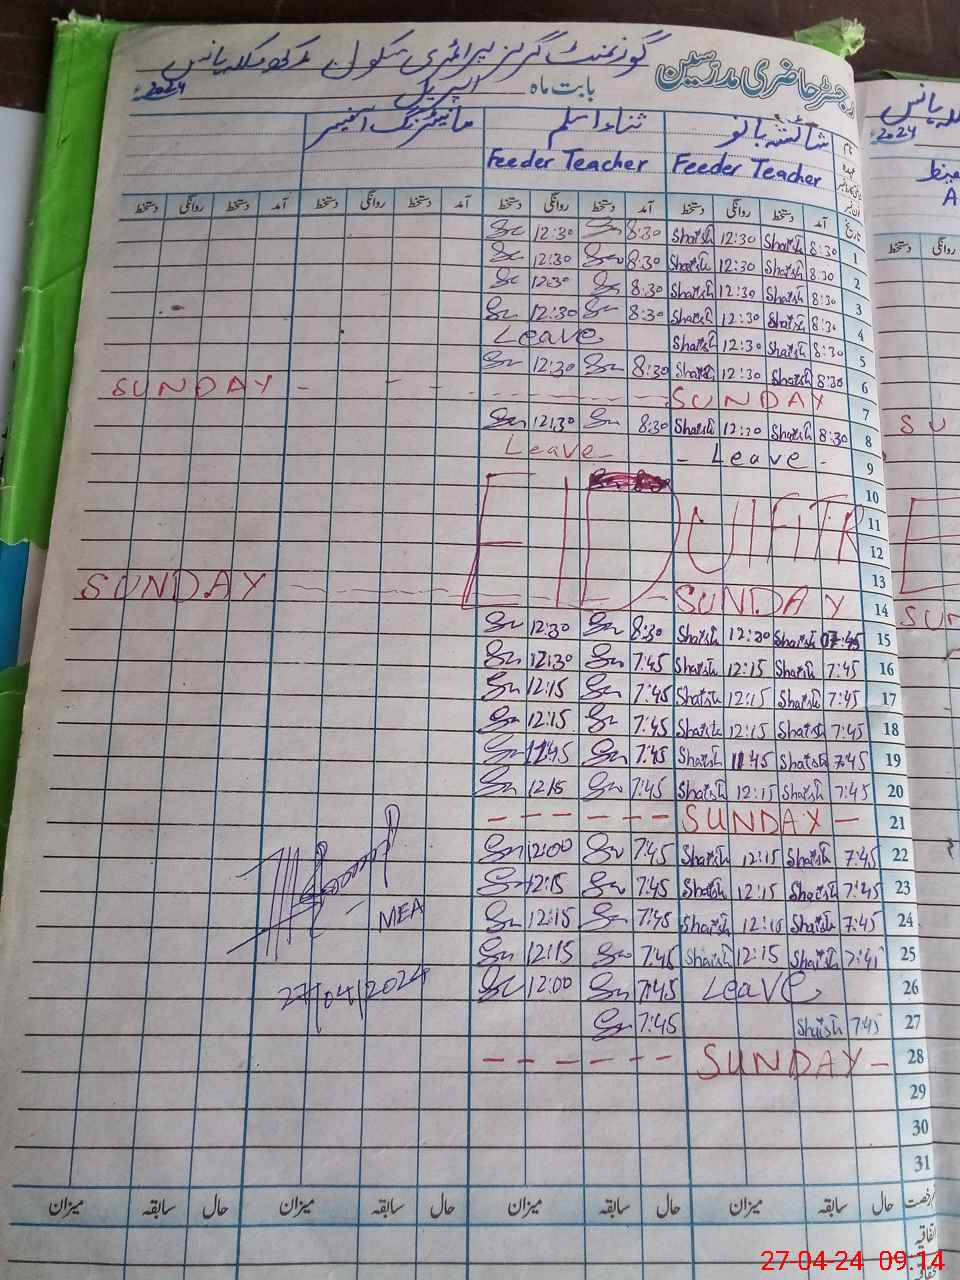 رجسٹر حاضری مدرسین گورنمنٹ گرلز پرائمری سکول
بابت ماہ اپریل 2024ء
نام شائستہ بانو ثناء اسلم مانیٹرنگ آفیسر
عہدہ Feeder Teacher Feeder Teacher
تاریخ آمد دستخط روانگی دستخط آمد دستخط روانگی دستخط آمد دستخط روانگی دستخط آمد دستخط روانگی دستخط
1 8:30 Shaista 12:30 Shaista 8:30 12:30
2 8:30 Shaista 12:30 Shaista 8:30 12:30
3 8:30 Shaista 12:30 Shaista 8:30 12:30
4 8:30 Shaista 12:30 Shaista 8:30 12:30
5 8:30 Shaista 12:30 Shaista Leave
6 8:30 Shaista 12:30 Shaista 8:30 12:30
7 SUNDAY SUNDAY
8 8:30 Shaista 12:30 Shaista 8:30 12:30
9 - Leave - Leave -
10
11 EID UL FITR
12
13
14 SUNDAY SUNDAY
15 07:45 Shaista 12:30 Shaista 8:30 12:30
16 7:45 Shaista 12:15 Shaista 7:45 12:30
17 7:45 Shaista 12:15 Shaista 7:45 12:15
18 7:45 Shaista 12:15 Shaista 7:45 12:15
19 7:45 Shaista 11:45 Shaista 7:45 11:45
20 7:45 Shaista 12:15 Shaista 7:45 12:15
21 - SUNDAY - - - - - -
22 7:45 Shaista 12:15 Shaista 7:45 12:00
23 7:45 Shaista 12:15 Shaista 7:45 12:15
24 7:45 Shaista 12:15 Shaista 7:45 12:15
MEA
25 7:45 Shaista 12:15 Shaista 7:45 12:15
26 Leave 7:45 12:00
27/04/2024
27 7:45 Shaista 7:45
28 - SUNDAY - - - - - -
29
30
31
رخصت حال سابقہ میزان حال سابقہ میزان حال سابقہ میزان حال سابقہ میزان
اتفاقیہ
2024ء
دستخط روانگی
SU
E
SUN
27-04-24 09:14